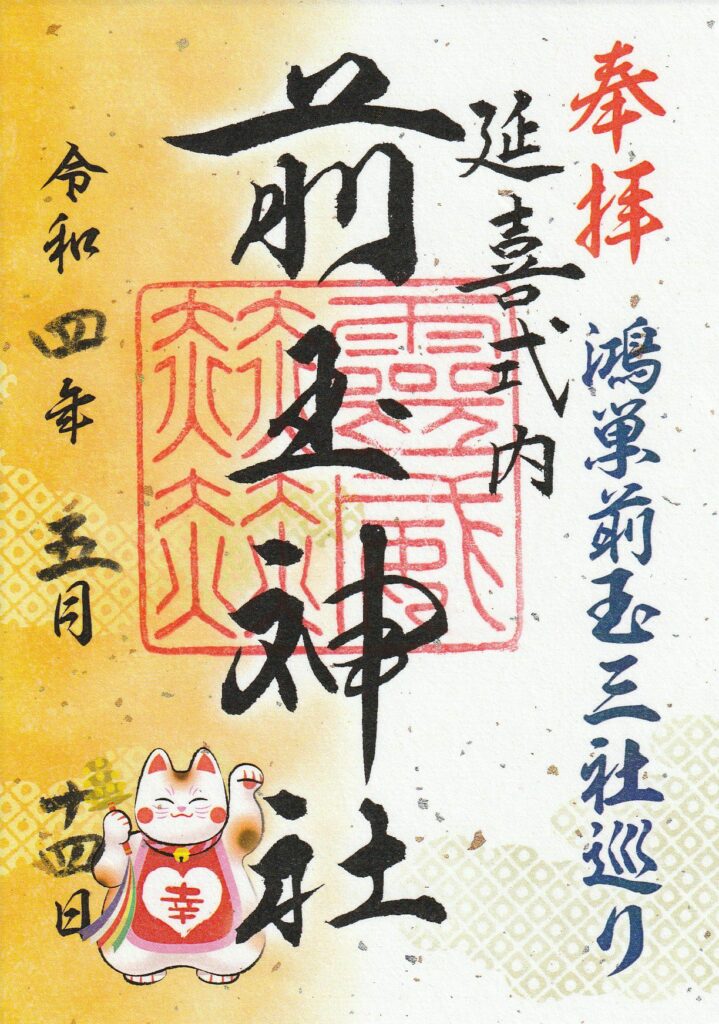 奉拝
鴻巣前玉三社巡り
延喜式内
前玉神社
霊威赫赫
令和四年五月十四日
幸